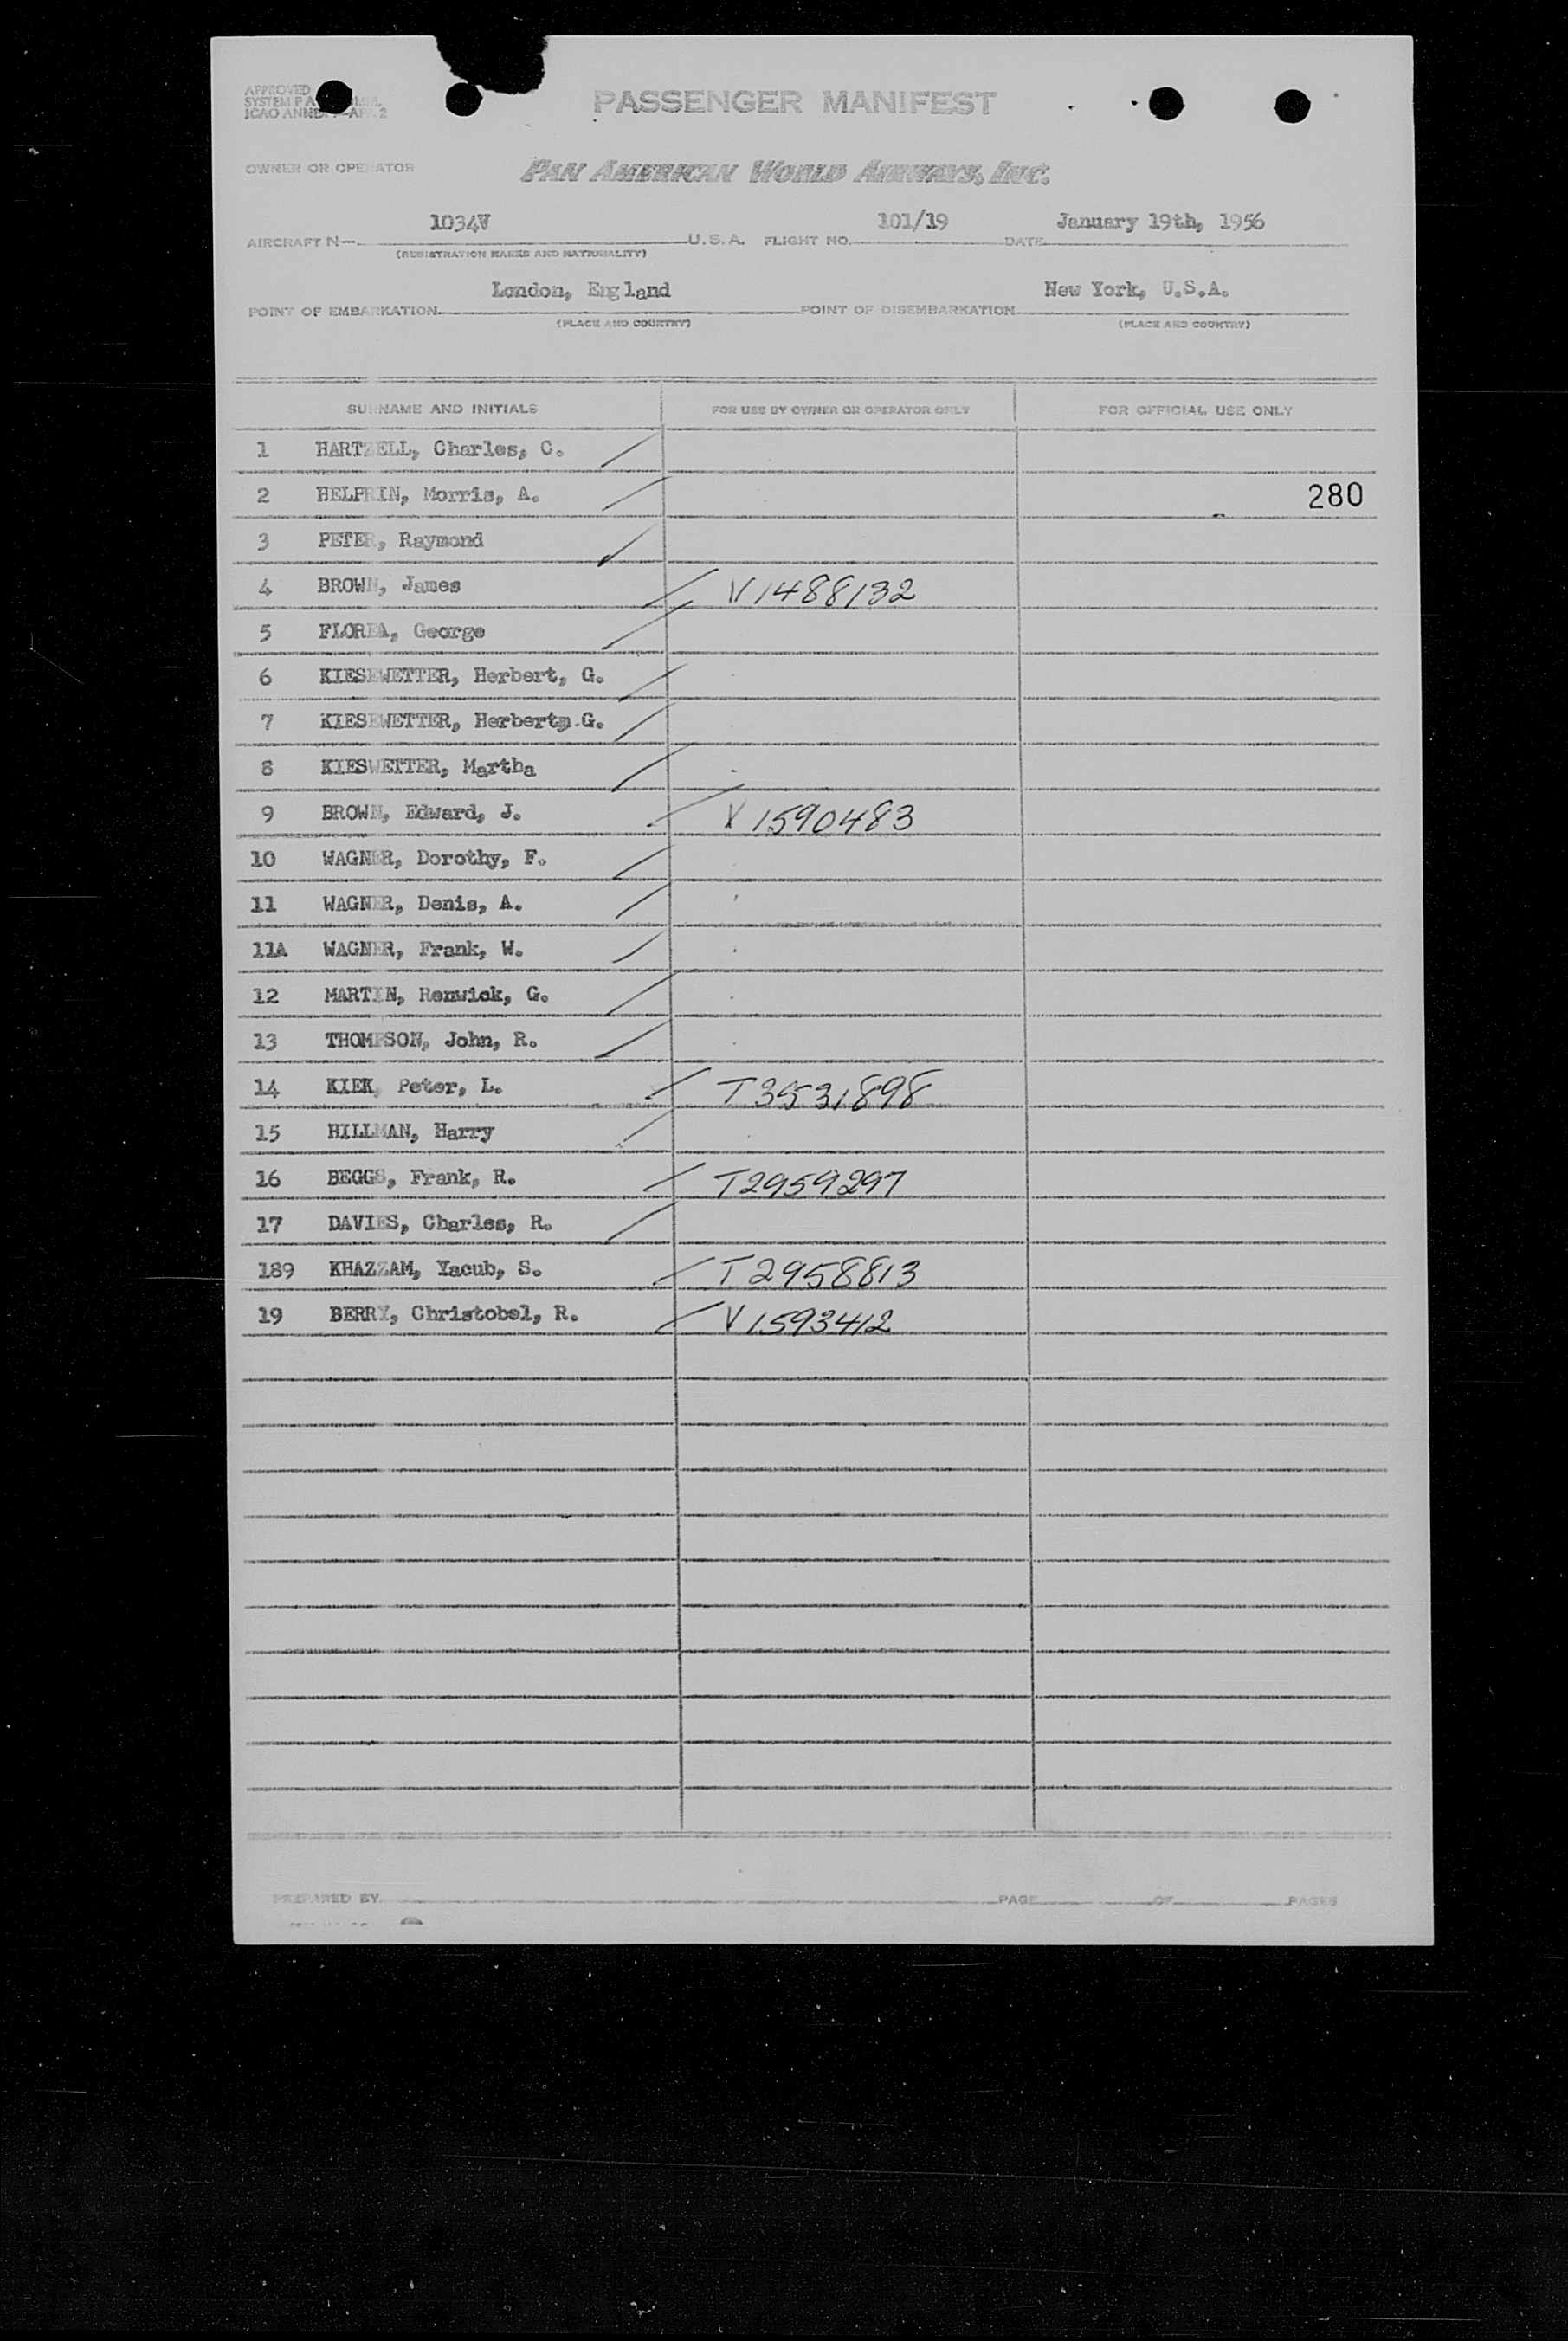 APPROVED
SYSTEM P A
ICAO ANNEX 2
PASSENGER MANIFEST
OWNER OR OPERATOR PAN AMERICAN WORLD AIRWAYS, INC.
1034V 101/19 January 19th, 1956
AIRCRAFT N— U.S.A. FLIGHT NO. DATE
(REGISTRATION MARKS AND NATIONALITY)
London, England New York, U.S.A.
POINT OF EMBARKATION POINT OF DISEMBARKATION
(PLACE AND COUNTRY) (PLACE AND COUNTRY)
SURNAME AND INITIALS FOR USE BY OWNER OR OPERATOR ONLY FOR OFFICIAL USE ONLY
1 HARTZELL, Charles, C.
2 HELPRIN, Morris, A. 280
3 PETER, Raymond
4 BROWN, James V1488132
5 FLOREA, George
6 KIESEWETTER, Herbert, G.
7 KIESEWETTER, Herbert, G.
8 KIESWETTER, Martha
9 BROWN, Edward, J. V1590483
10 WAGNER, Dorothy, F.
11 WAGNER, Denis, A.
11A WAGNER, Frank, W.
12 MARTIN, Renwick, G.
13 THOMPSON, John, R.
14 KIEK, Peter, L. T3531898
15 HILLMAN, Harry
16 BEGGS, Frank, R. T2959297
17 DAVIES, Charles, R.
189 KHAZZAM, Yacub, S. T2958813
19 BERRY, Christobel, R. V1593412
PREPARED BY PAGE OF PAGES